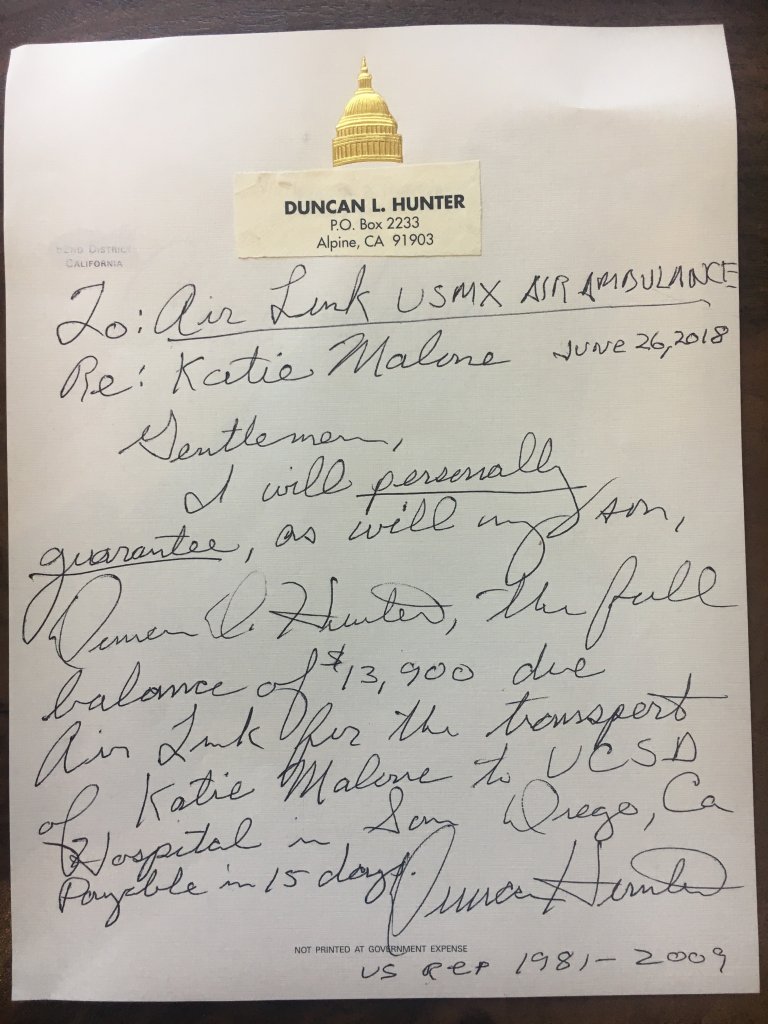 DUNCAN L. HUNTER
P.O. Box 2233
Alpine, CA 91903
52ND DISTRICT
CALIFORNIA
To: Air Link USMX AIR AMBULANCE
Re: Katie Malone JUNE 26, 2018
Gentlemen,
I will personally
guarantee, as will my son,
Duncan D. Hunter, the full
balance of $13,900 due
Air Link for the transport
of Katie Malone to UCSD
Hospital in San Diego, Ca
Payable in 15 days.
Duncan Hunter
NOT PRINTED AT GOVERNMENT EXPENSE
US REP 1981-2009